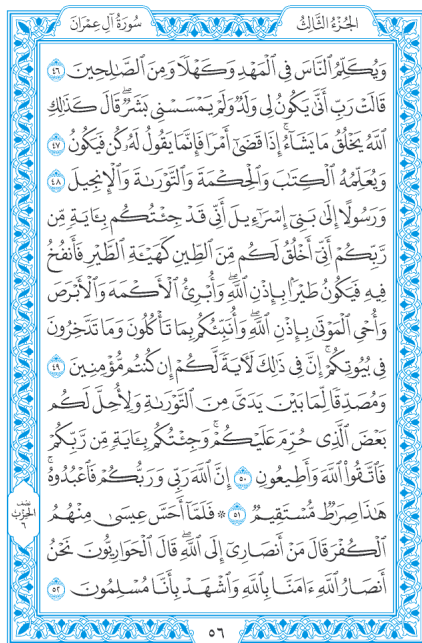 الجُزْءُ الثَّالِثُ
سُورَةُ آلِ عِمْرَانَ
وَيُكَلِّمُ ٱلنَّاسَ فِي ٱلْمَهْدِ وَكَهْلًا وَمِنَ ٱلصَّٰلِحِينَ ٤٦
قَالَتْ رَبِّ أَنَّىٰ يَكُونُ لِي وَلَدٌ وَلَمْ يَمْسَسْنِي بَشَرٌۖ قَالَ كَذَٰلِكِ
ٱللَّهُ يَخْلُقُ مَا يَشَآءُۚ إِذَا قَضَىٰٓ أَمْرًا فَإِنَّمَا يَقُولُ لَهُۥ كُن فَيَكُونُ ٤٧
وَيُعَلِّمُهُ ٱلْكِتَٰبَ وَٱلْحِكْمَةَ وَٱلتَّوْرَىٰةَ وَٱلْإِنجِيلَ ٤٨
وَرَسُولًا إِلَىٰ بَنِيٓ إِسْرَٰٓءِيلَ أَنِّي قَدْ جِئْتُكُم بِـَٔايَةٍ مِّن
رَّبِّكُمْ أَنِّيٓ أَخْلُقُ لَكُم مِّنَ ٱلطِّينِ كَهَيْـَٔةِ ٱلطَّيْرِ فَأَنفُخُ
فِيهِ فَيَكُونُ طَيْرًۢا بِإِذْنِ ٱللَّهِۖ وَأُبْرِئُ ٱلْأَكْمَهَ وَٱلْأَبْرَصَ
وَأُحْيِ ٱلْمَوْتَىٰ بِإِذْنِ ٱللَّهِۖ وَأُنَبِّئُكُم بِمَا تَأْكُلُونَ وَمَا تَدَّخِرُونَ
فِي بُيُوتِكُمْۚ إِنَّ فِي ذَٰلِكَ لَأٓيَةً لَّكُمْ إِن كُنتُم مُّؤْمِنِينَ ٤٩
وَمُصَدِّقًا لِّمَا بَيْنَ يَدَيَّ مِنَ ٱلتَّوْرَىٰةِ وَلِأُحِلَّ لَكُم
بَعْضَ ٱلَّذِي حُرِّمَ عَلَيْكُمْۚ وَجِئْتُكُم بِـَٔايَةٍ مِّن رَّبِّكُمْ
فَٱتَّقُوا۟ ٱللَّهَ وَأَطِيعُونِ ٥٠ إِنَّ ٱللَّهَ رَبِّي وَرَبُّكُمْ فَٱعْبُدُوهُۚ
هَٰذَا صِرَٰطٌ مُّسْتَقِيمٌ ٥١ ۞ فَلَمَّآ أَحَسَّ عِيسَىٰ مِنْهُمُ
ٱلْكُفْرَ قَالَ مَنْ أَنصَارِيٓ إِلَى ٱللَّهِۖ قَالَ ٱلْحَوَارِيُّونَ نَحْنُ
أَنصَارُ ٱللَّهِ ءَامَنَّا بِٱللَّهِ وَٱشْهَدْ بِأَنَّا مُسْلِمُونَ ٥٢
نصف
الحزب
٦
٥٦